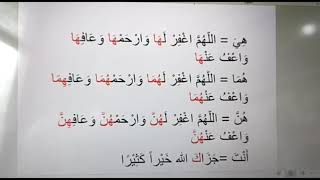 هِيَ = اللَّهُمَّ اغْفِرْ لَهَا وَارْحَمْهَا وَعَافِهَا
وَاعْفُ عَنْهَا
هُمَا = اللَّهُمَّ اغْفِرْ لَهُمَا وَارْحَمْهُمَا وَعَافِهِمَا
وَاعْفُ عَنْهُمَا
هُنَّ = اللَّهُمَّ اغْفِرْ لَهُنَّ وَارْحَمْهُنَّ وَعَافِهِنَّ
وَاعْفُ عَنْهُنَّ
أَنْتَ = جَزَاكَ الله خَيْراً كَثِيْرًا